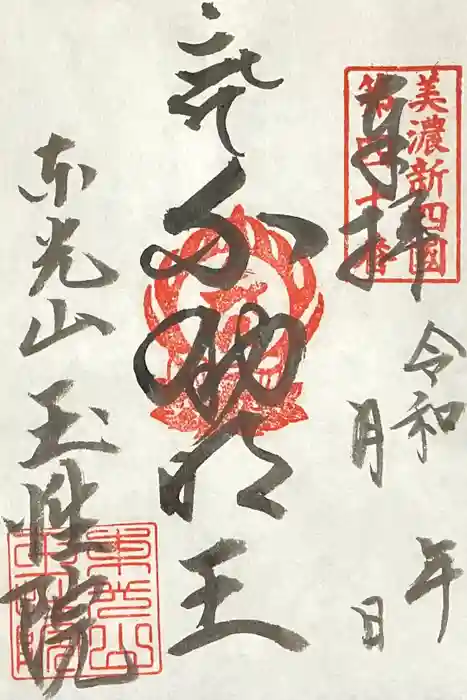 美濃新四国
第四十番
奉拝
令和 年
月 日
不動明王
東光山 玉性院